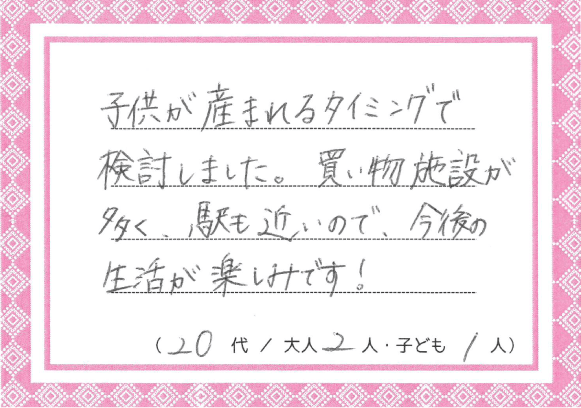 子供が産まれるタイミングで
検討しました。買い物施設が
多く、駅も近いので、今後の
生活が楽しみです!
(20代 / 大人2人・子ども1人)